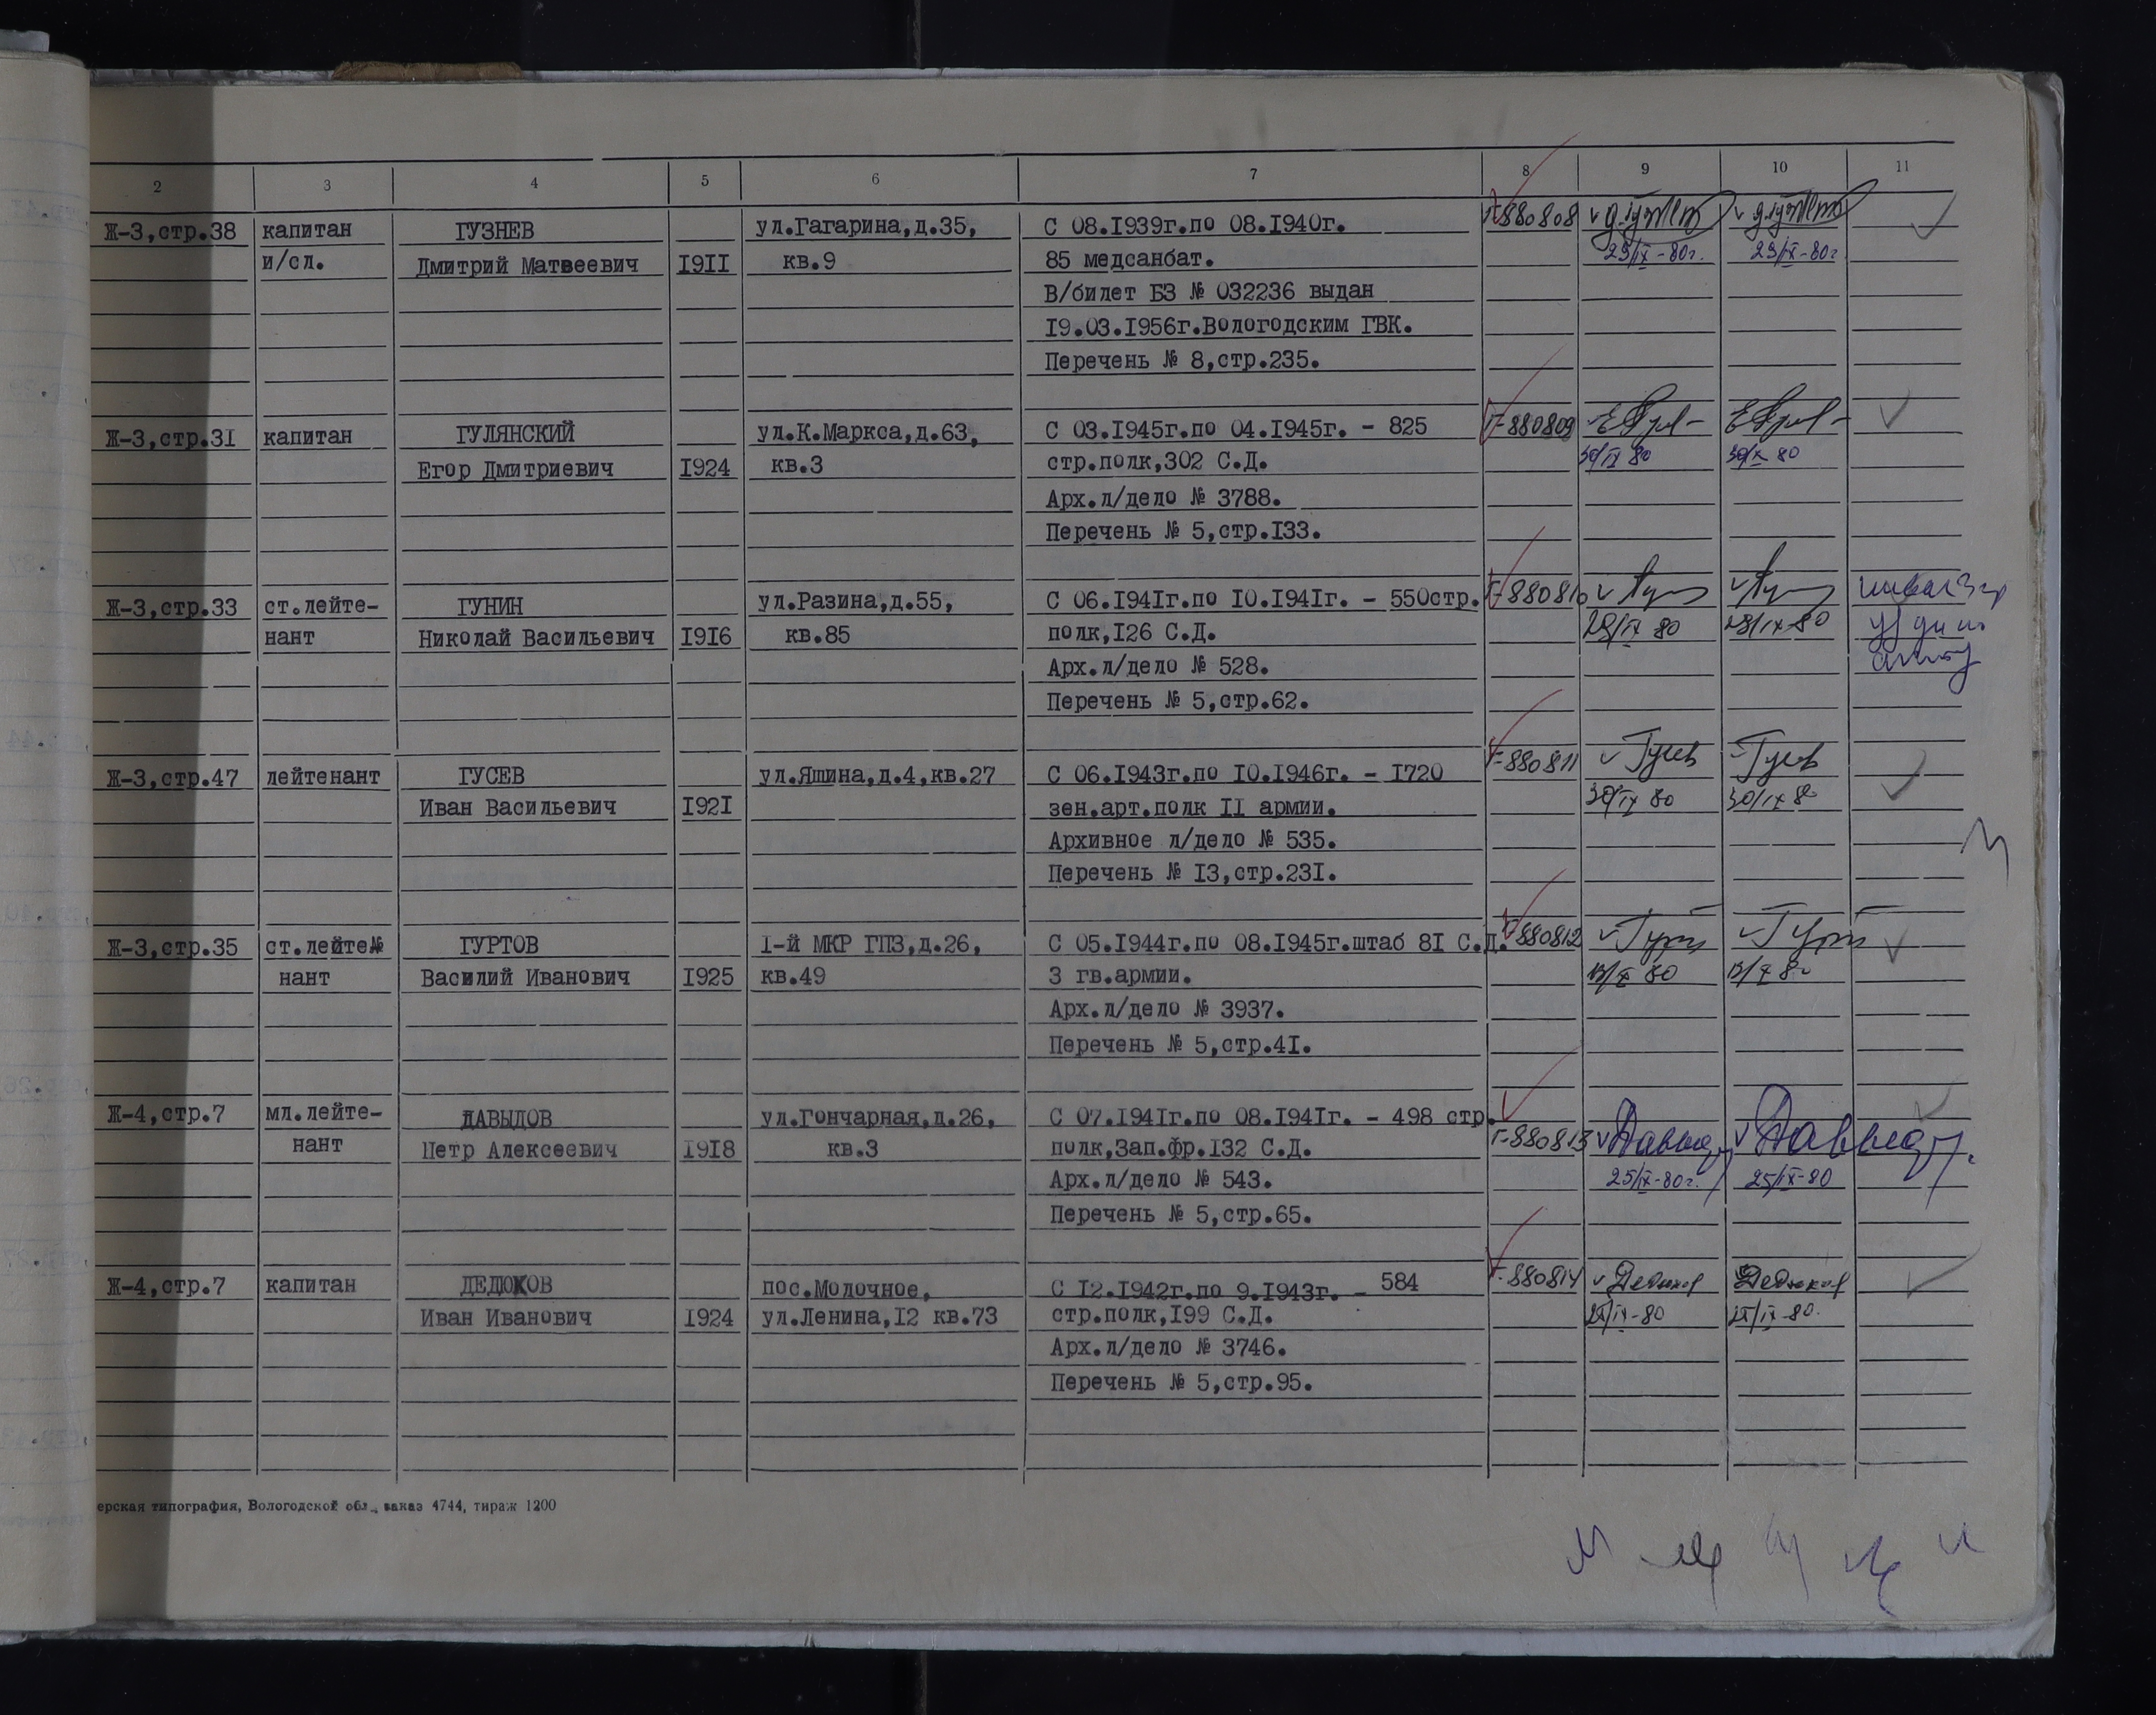 2 3 4 5 6 7 8 9 10 11
Ж-3,стр.38 капитан ГУЗНЕВ ул.Гагарина,д.35, С 08.1939г.по 08.1940г. Г-880808
и/сл. Дмитрий Матвеевич 1911 кв.9 85 медсанбат. 23/IX-80г. 23/IX-80г
В/билет БЗ № 032236 выдан
19.03.1956г.Вологодским ГВК.
Перечень № 8,стр.235.
Ж-3,стр.31 капитан ГУЛЯНСКИЙ ул.К.Маркса,д.63, С 03.1945г.по 04.1945г. - 825 Г-880809
Егор Дмитриевич 1924 кв.3 стр.полк,302 С.Д. 30/IX 80 30/IX 80
Арх.л/дело № 3788.
Перечень № 5,стр.133.
Ж-3,стр.33 ст.лейте- ГУНИН ул.Разина,д.55, С 06.1941г.по 10.1941г. - 550стр. Г-880810
нант Николай Васильевич 1916 кв.85 полк,126 С.Д. 29/IX 80 /IX 80
Арх.л/дело № 528.
Перечень № 5,стр.62.
Ж-3,стр.47 лейтенант ГУСЕВ ул.Яшина,д.4,кв.27 С 06.1943г.по 10.1946г. - 1720 Г-880811 Гусев Гусев
Иван Васильевич 1921 зен.арт.полк II армии. 30/IX 80 30/IX 8
Архивное л/дело № 535.
Перечень № 13,стр.231.
Ж-3,стр.35 ст.лейте№ ГУРТОВ 1-й МКР ГПЗ,д.26, С 05.1944г.по 08.1945г.штаб 81 С.Д. Г-880812
нант Василий Иванович 1925 кв.49 3 гв.армии. 13/X 80 13/X 80
Арх.л/дело № 3937.
Перечень № 5,стр.41.
Ж-4,стр.7 мл.лейте- ДАВЫДОВ ул.Гончарная,д.26, С 07.1941г.по 08.1941г. - 498 стр.
нант Петр Алексеевич 1918 кв.3 полк,Зап.фр.132 С.Д. Г-880813
Арх.л/дело № 543. 25/IX-80г. 25/IX-80
Перечень № 5,стр.65.
Ж-4,стр.7 капитан ДЕДЮКОВ пос.Молочное, С 12.1942г.по 9.1943г. - 584 Г-880814 Дедюков Дедюков
Иван Иванович 1924 ул.Ленина,12 кв.73 стр.полк,199 С.Д. /IX-80 /IX-80.
Арх.л/дело № 3746.
Перечень № 5,стр.95.
ерская типография, Вологодской обл., заказ 4744, тираж 1200